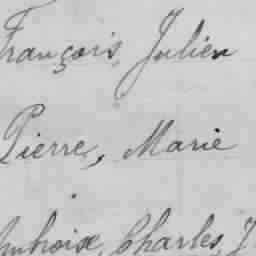 François, Julien
Pierre, Marie
Ambroise, Charles, J